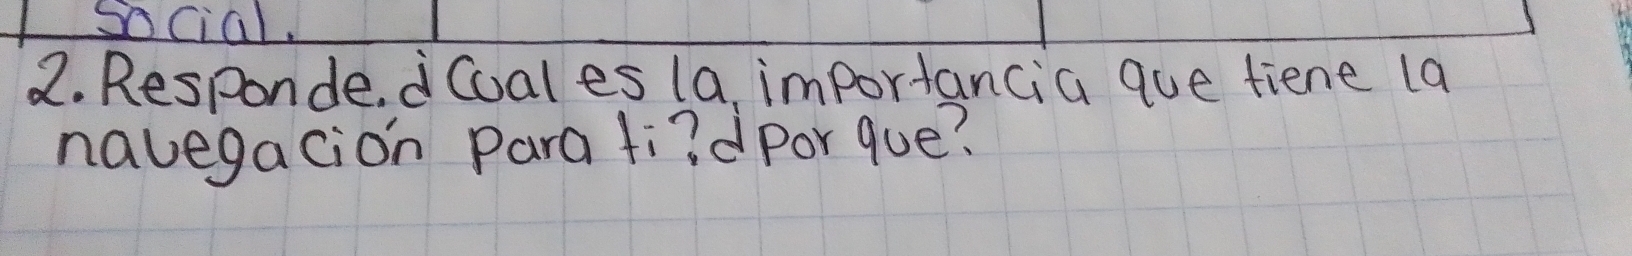 social.
2. Responde. ¿Cual es la importancia que tiene la
navegación para ti? ¿Por que?